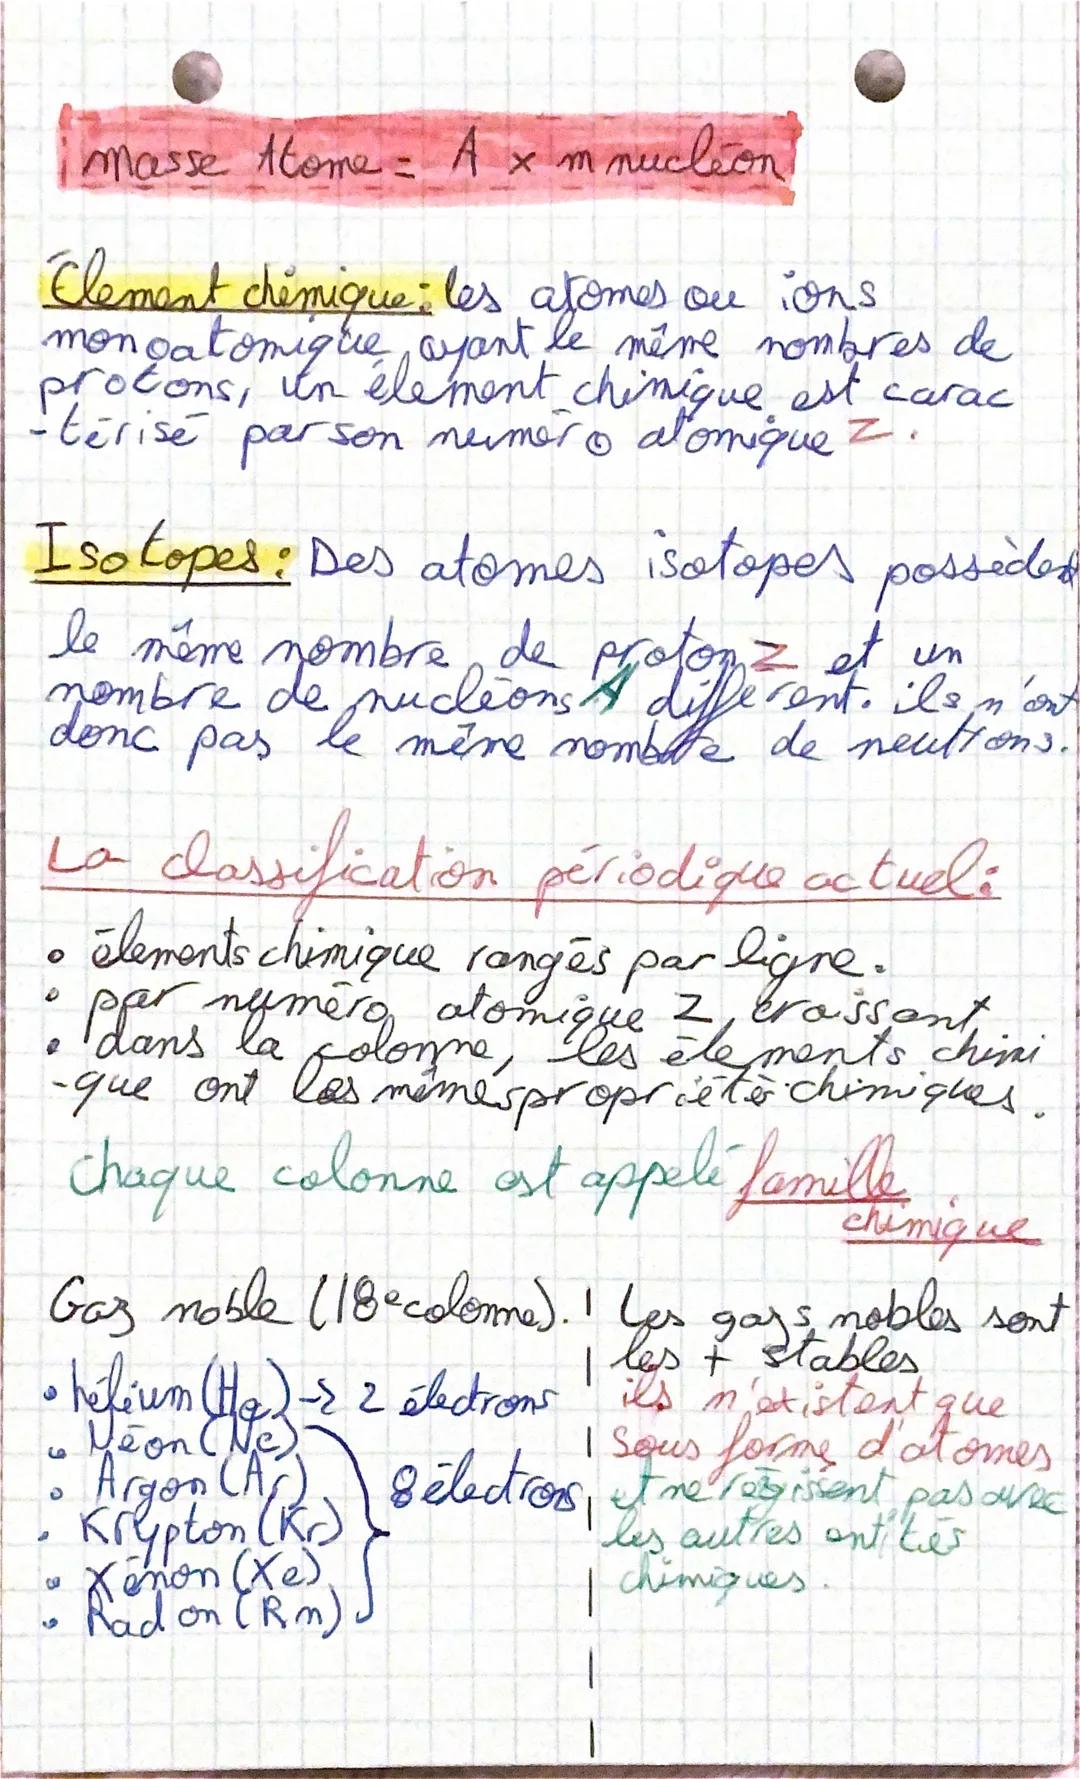 masse Atome = A x m nucléon
Élement chimique : les atomes ou ions
monoatomique ayant le même nombres de
protons, un élement chimique est carac
-térisé par son numéro atomique Z.
Isotopes : Des atomes isotopes possèdent
le même nombre de proton Z et un
nombre de nucléons A différent. ils n'ont
donc pas le même nombre de neutrons.
La classification périodique actuel :
• élements chimique rangés par ligne.
• par numéro atomique Z croissant
• dans la colonne, les élements chimi
-que ont les mêmes propriétés chimiques.
Chaque colonne est appelé famille
chimique
Gaz noble (18e colonne).
• hélium (He) -> 2 électrons
• Néon (Ne)
• Argon (Ar)
• Krypton (Kr)
• Xénon (Xe)
• Radon (Rn)
8 électrons
Les gazs nobles sont
les + stables
ils n'existent que
sous forme d'atomes
et ne régissent pas avec
les autres entités
chimiques.